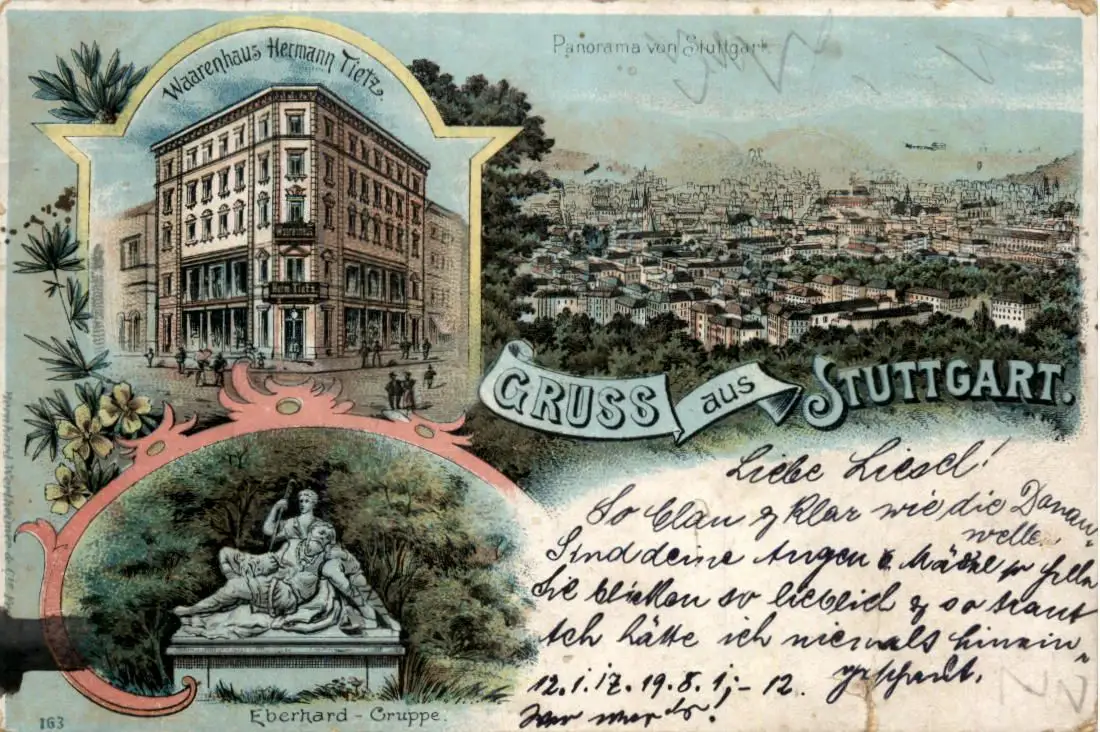 Waarenhaus Hermann Tietz.
Panorama von Stuttgart.
GRUSS aus STUTTGART.
Liebe Liesel!
So blau & klar wie die Donau-
welle
Sind deine Augen Mädel so helle
Sie blicken so lieblich & so traut
Ach hätte ich niemals hinein-
geschaut.
12.1.17.19.8.1;-12.
Eberhard-Gruppe.
163